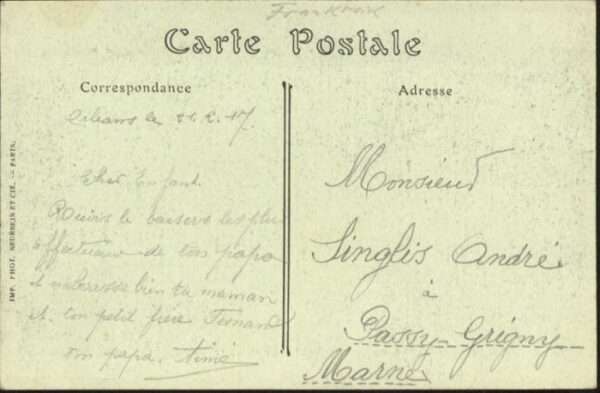 Frankreich
Carte Postale
Correspondance
Adresse
Orléans le 21.2.17.
Cher Enfant.
Reçois le baisers les plus
affectueux de ton papa
et embrasse bien ta maman
et ton petit frère Fernand
ton papa. Aimé
Monsieur
Singlis André
à
Passy-Grigny
Marne
IMP. PHOT. NEURDEIN ET CIE. — PARIS.